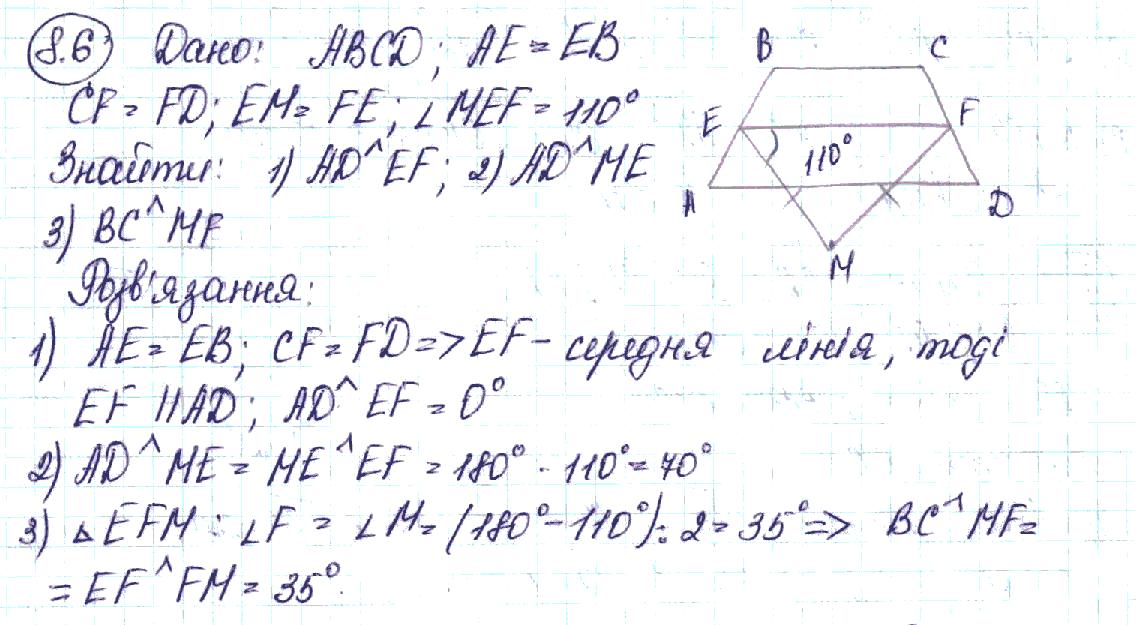 8.6 Дано: ABCD; AE = EB
CF = FD; EM = FE; ∠MEF = 110°
Знайти: 1) AD^EF; 2) AD^ME
3) BC^MF
Розв'язання:
1) AE = EB; CF = FD => EF - середня лінія, тоді
EF || AD; AD^EF = 0°
2) AD^ME = ME^EF = 180° - 110° = 70°
3) △EFM: ∠F = ∠M = (180° - 110°) : 2 = 35° => BC^MF =
= EF^FM = 35°.
B C
E F
110°
A D
M